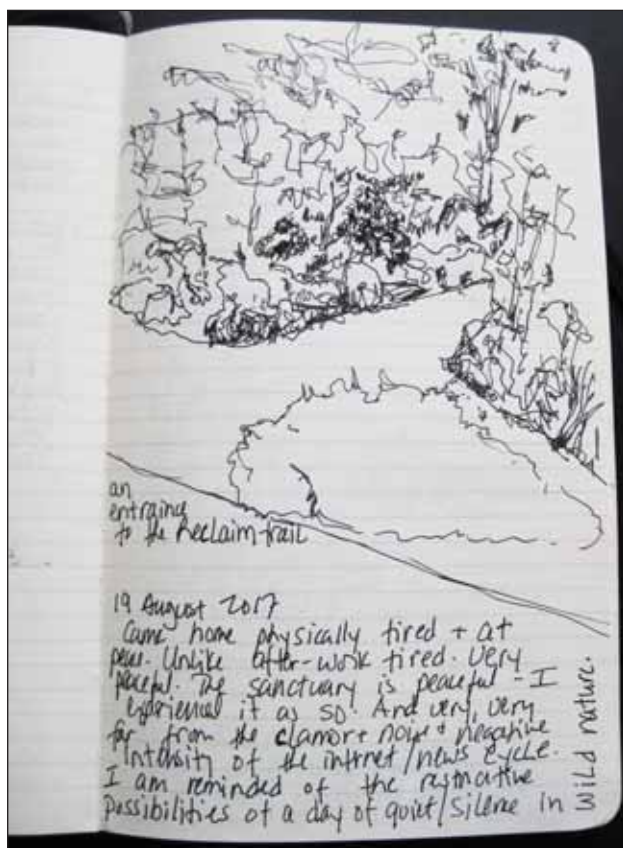 an
entrance
to the Reclaim trail
19 August 2017
Came home physically tired + at
peace. Unlike after-work tired. Very
peaceful. The sanctuary is peaceful - I
experience it as so. And very, very
far from the clamor + noise + negative
intensity of the internet/news cycle.
I am reminded of the restorative
possibilities of a day of quiet/silence in
wild nature.